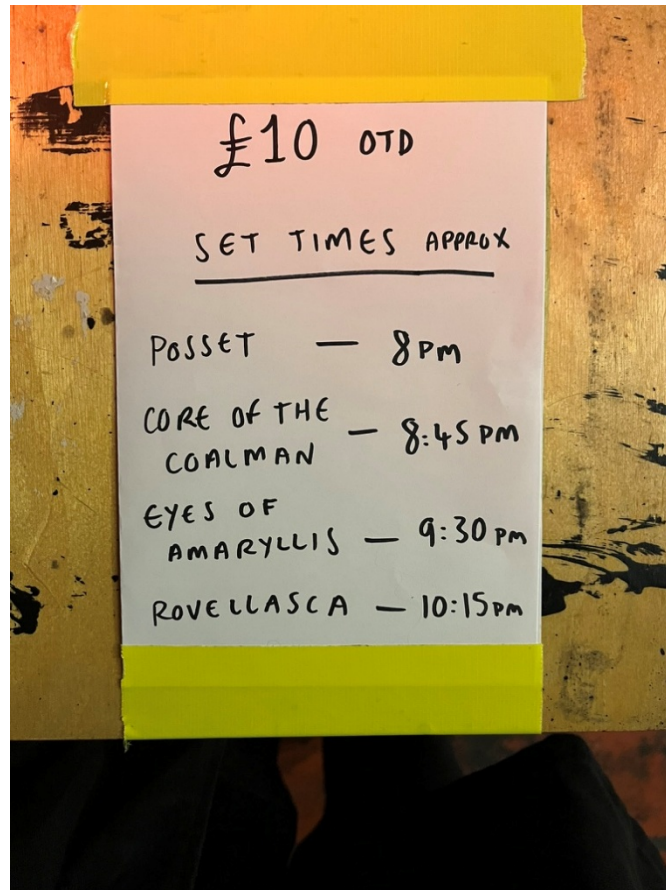 £10 OTD
SET TIMES APPROX
POSSET — 8PM
CORE OF THE
COALMAN — 8:45 PM
EYES OF
AMARYLLIS — 9:30 PM
ROVELLASCA — 10:15PM